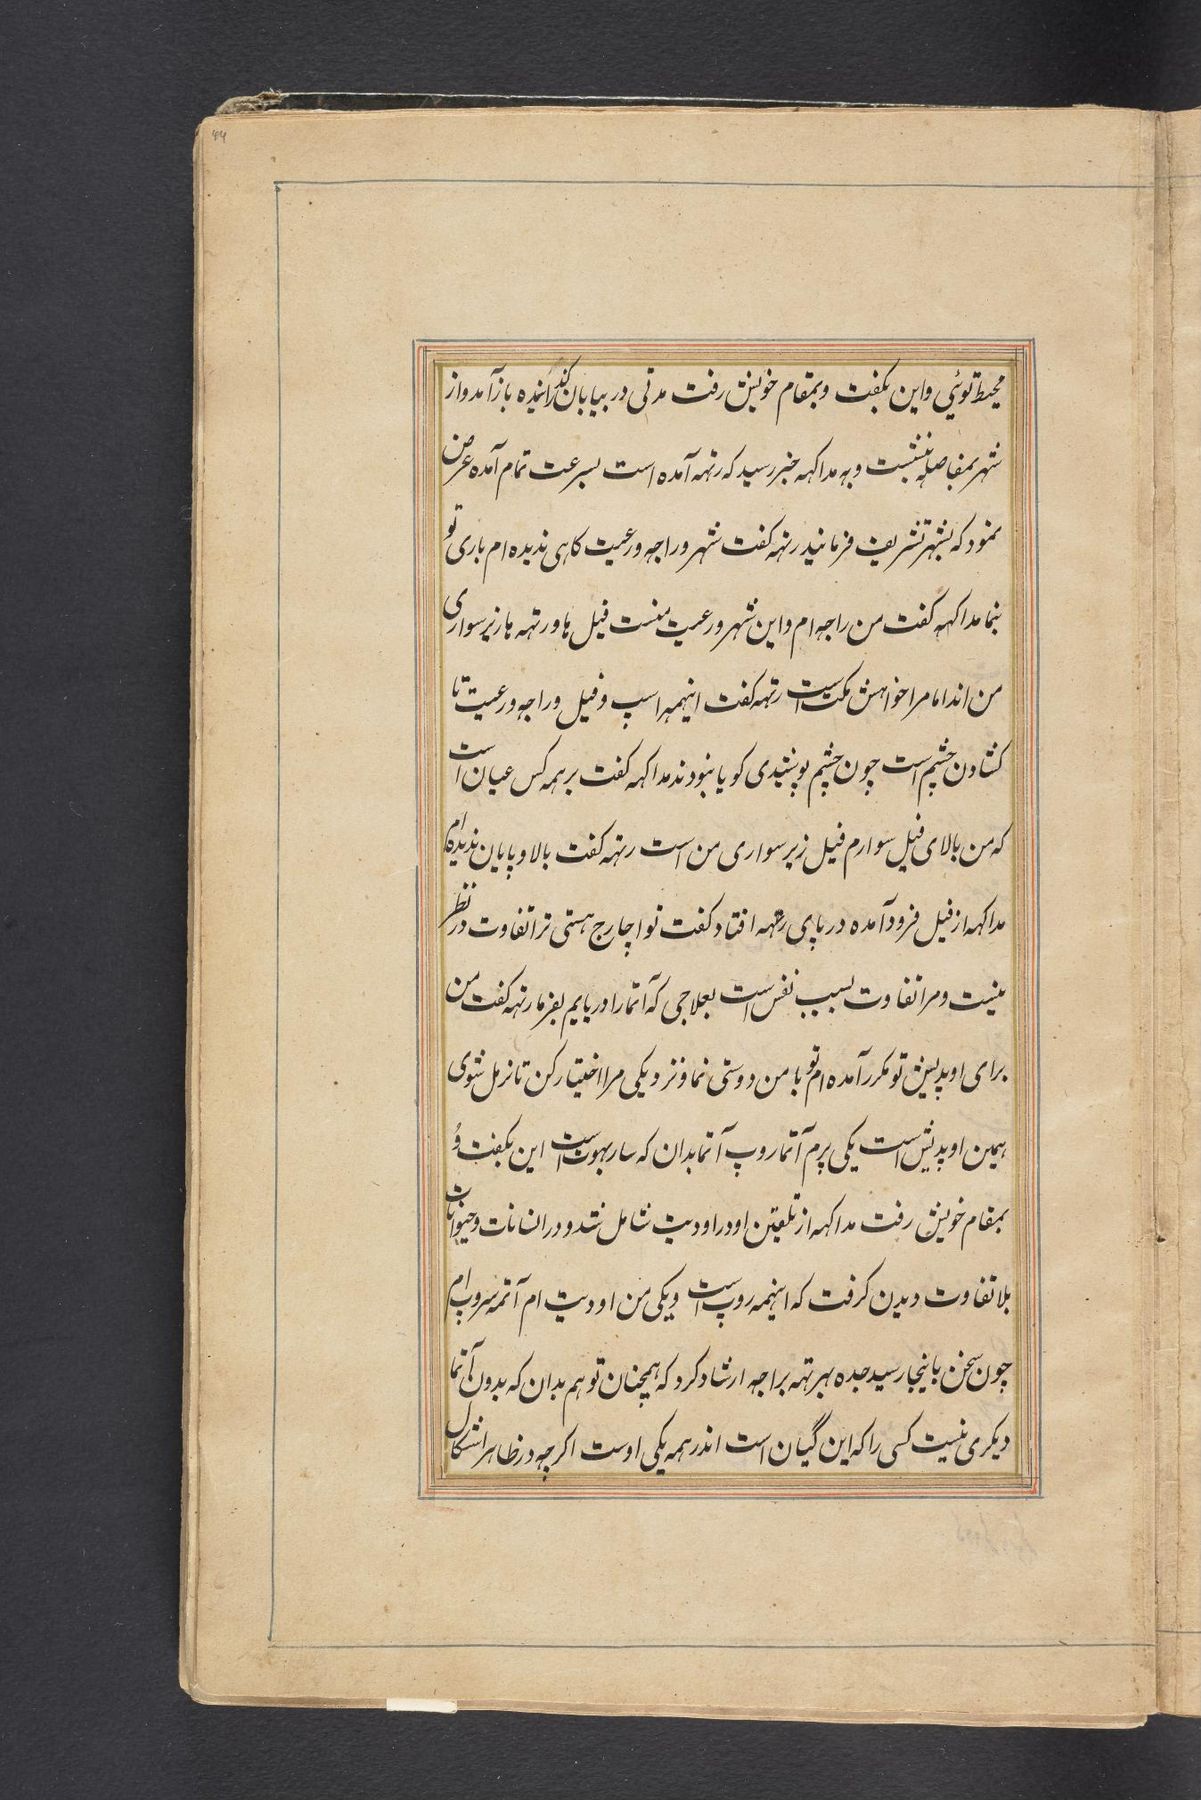 ۴۴
محیط توئی و این بکفت و بمقام خویش رفت مدتی در بیابان کذرانیده باز آمد و از
شهر بفاصله بنشست و به مداکهه خبر رسید که رتهه آمده است بسرعت تمام آمده عرض
نمود که بشهر تشریف فرمائید رتهه کفت شهر و راجه و رعیت کاهی ندیده ام باری تو
بنما مداکهه کفت من راجه ام و این شهر و رعیت منست فیل ها و رتهه ها زیر سواری
من اند اما مرا خواهش مکت است رتهه کفت اینهمه اسپ و فیل و راجه و رعیت تا
کشادن چشم است چون چشم پوشیدی کویا نبودند مداکهه کفت بر همه کس عیان است
که من بالای فیل سوارم فیل زیر سواری من است رتهه کفت بالا و پایان ندیده ام
مداکهه از فیل فرود آمده در پای رتهه افتاد کفت تو اچارج هستی ترا تفاوت در نظر
نیست و مرا تفاوت بسبب نفس است بعلاجی که آتما را دریابم بفرما رتهه کفت من
برای اوپدیش تو مکرر آمده ام تو با من دوستی نما و نزدیکی مرا اختیار کن تا نرمل شوی
همین اوپدیش است یکی پرم آتما روپ آتما بدان که ساربهوت است این بکفت و
بمقام خویش رفت مداکهه از تلقین او در اودیت شامل شد و در انسانات و حیوانات
بلا تفاوت دیدن کرفت که اینهمه روپ است و یکی من اودیت ام آتمه سروپ ام
چون سخن باینجا رسید جده بهرتهه براجه ارشاد کرد که همچنان تو هم بدان که بدون آتما
دیکری نیست کسی را که این گیان است اندر همه یکی اوست اکرچه در ظاهر اشکال